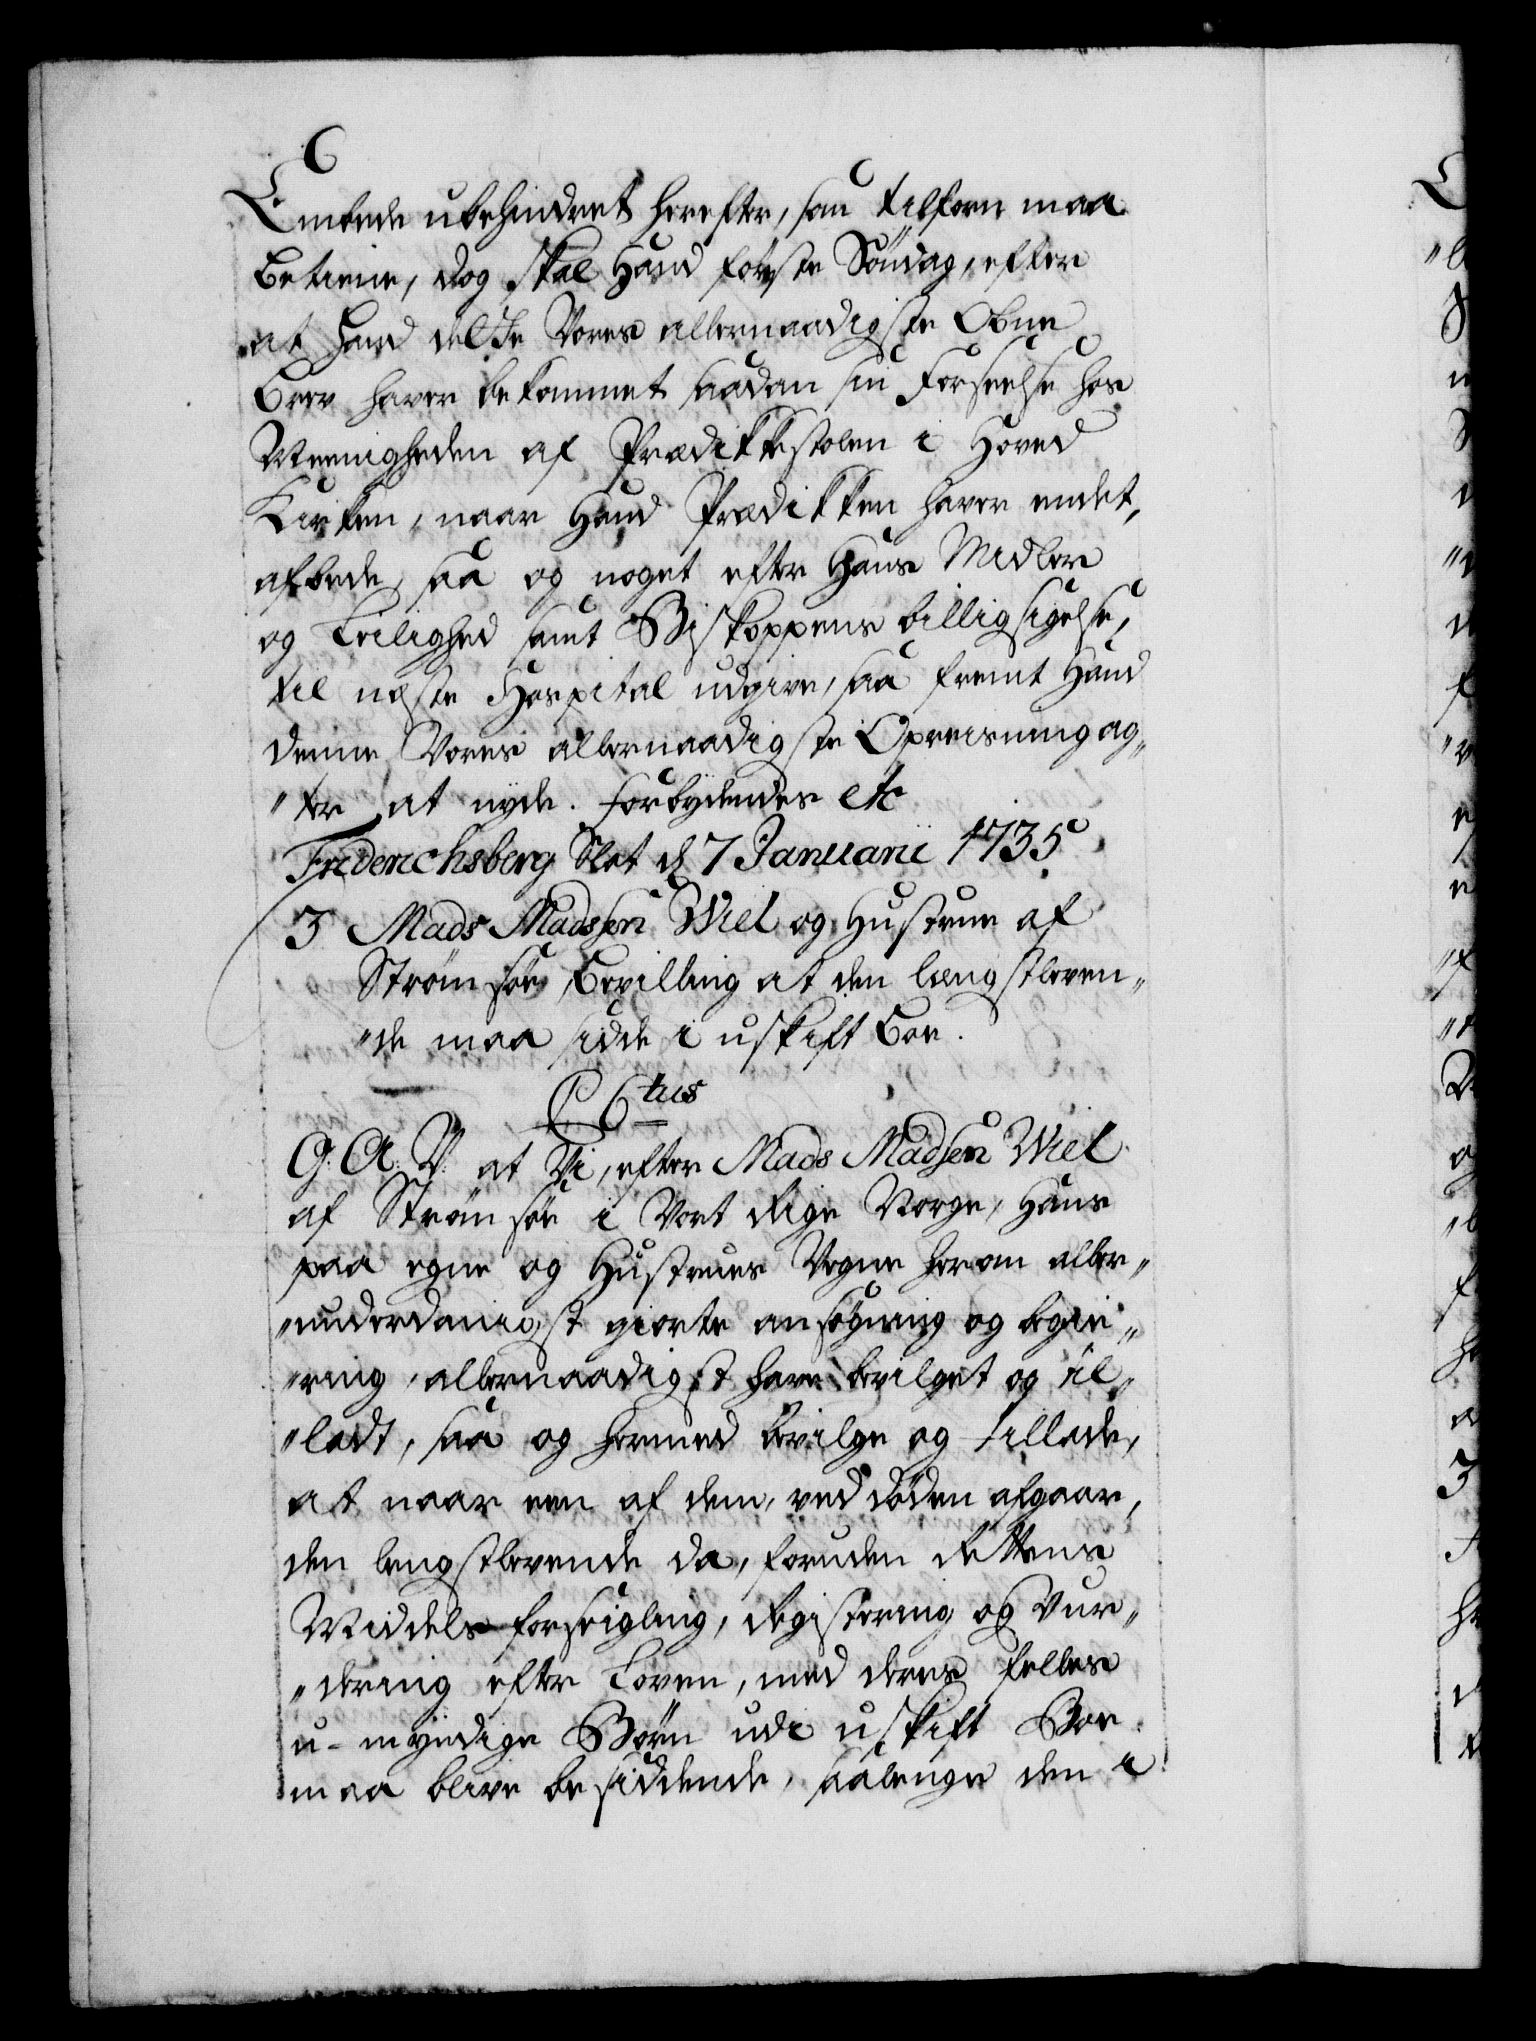 Embede ubehindret herefter, som tilforn maa
betiene, dog skal Hand første Søndag, efter
at hand dette Vores allernaadigste Obne
Brev haver bekommet saadan sin Forseelse hos
Meenigheden af Prædikkestolen i Hoved
Kirken, naar Hand Prædikken haver endet,
afbede, saa og noget efter Hans Midler
og Leilighed samt Biskoppens billigsigelse,
til neste Hospital udgive, saa fremt Hand
denne Vores allernaadigste Opreisning ag„
„ter at nyde. Forbydendes etc
Friderichsberg Slot d 7 Januarii 1735.
3 Mads Madssøn Wiel og Hustrue af
Strømsøe Bevilling at den længstleven„
„de maa sidde i uskift Boe.
C 6tus
G. A. V. at Vi, efter Mads Madsen Wiel
af Strømsøe i Vort Rige Norge, Hans
paa egne og Hustrues Vegne herom aller„
„underdanigst giorte ansøgning og begie„
„ring, allernaadigst have bevilget og til„
„ladt, saa og hermed bevilge og tillade,
at naar een af dem, ved døden afgaar,
den lengstlevende da, foruden Rettens
Middels forseigling, Registering og Vur„
„dering efter Loven, med deres felles
u-myndige Børn udi uskift Boe
maa blive besiddende, saalenge den i